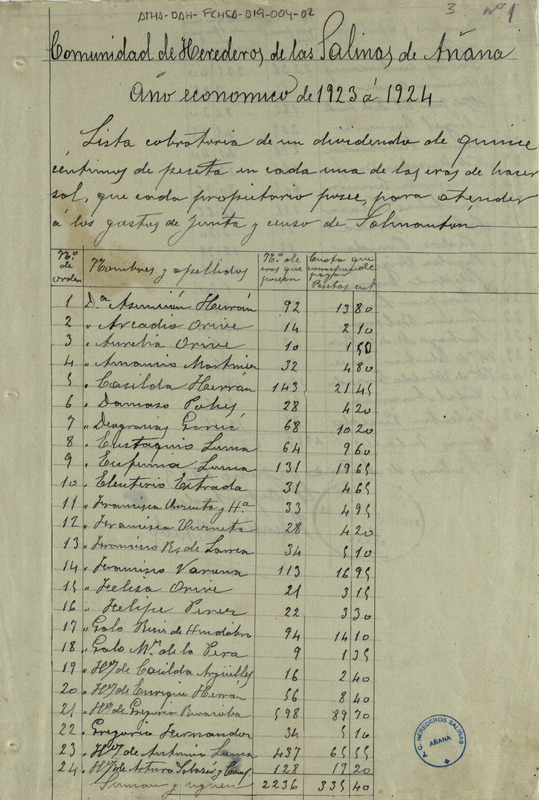 ATHA-DAH-FCHSA-019-004-02
3 nº 1
Comunidad de Herederos de las Salinas de Añana
Año economico de 1923 á 1924
Lista cobratoria de un dividendo de quince
céntimos de peseta en cada una de las eras de hacer
sal, que cada propietario posee, para atender
á los gastos de Junta y censo de
Nº. de orden Nombres y apellidos Nº. de eras que poseen Cuota que corresponde pagar Pesetas cts
1 Dª Asunción Herrán 92 13 80
2 " Arcadio Orive 14 2 10
3 " Aurelia Orive 10 1 50
4 " Amancio Martinez 32 4 80
5 " Casilda Herran 143 21 45
6 " Damaso 28 4 20
7 " Deogracias 68 10 20
8 " Eustaquio 64 9 60
9 " Eufemia 131 19 65
10 " Eleuterio Estrada 31 4 65
11 " Francisca Urrueta y Hª 33 4 95
12 " Francisca Urrueta 28 4 20
13 " Francisco R. de 34 5 10
14 " Francisco 113 16 95
15 " Felisa Orive 21 3 15
16 " Felipe Perez 22 3 30
17 " Galo Ruiz de 94 14 10
18 " Galo Mz. de la Pera 9 1 35
19 " Hºs de Casilda Argüelles 16 2 40
20 " Hºs de Enrique Herrán 56 8 40
21 " Hºs de Gregorio 598 89 70
22 " Gregorio Hernandez 34 5 10
23 " Hºs de Antonio 437 65 55
24 " Hºs de Arturo Salazar y 128 19 20
Suman y siguen 2236 335 40
C. HEREDEROS SALINAS
AÑANA